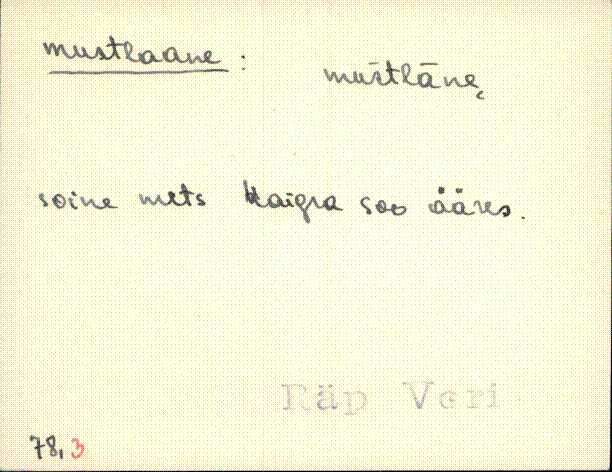 mustlaane :
mus̄tlāne̮
soine mets Kaigra soo ääres.
Räp Veri
78, 3